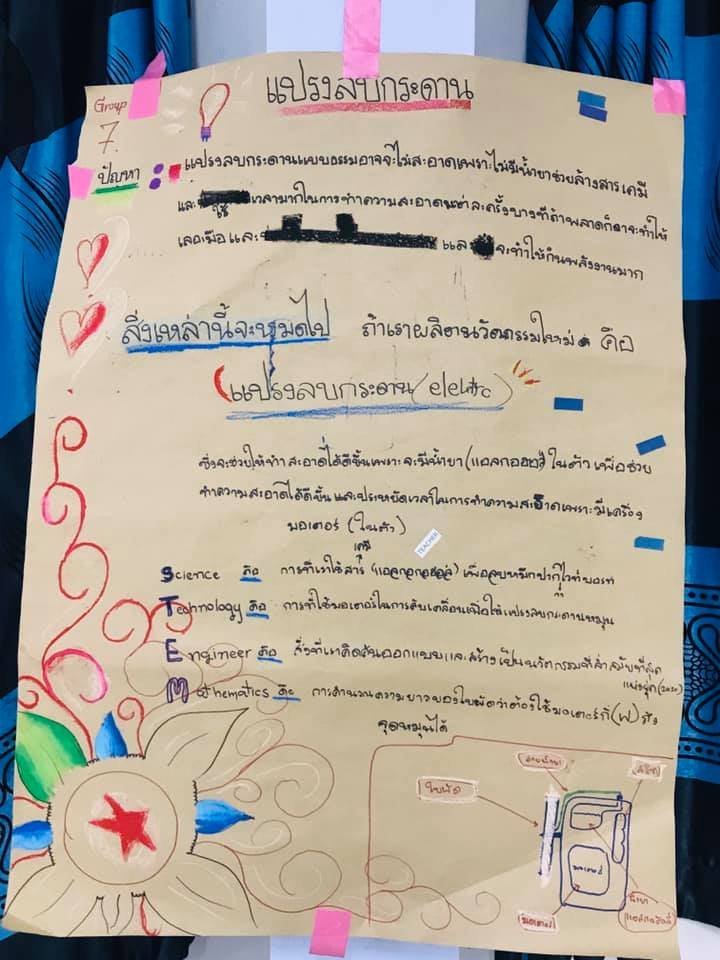 แปรงลบกระดาน
Group
7.
ปัญหา : แปรงลบกระดานแบบธรรมอาจจะไม่สะอาดเพราะไม่มีน้ำยาช่วยล้างสารเคมี
และ ใช้เวลามากในการทำความสะอาดแต่ละครั้งบางทีถ้าพลาดก็อาจจะทำให้
เลอะมือและ และ จะทำให้กินพลังงานมาก
สิ่งเหล่านี้จะหมดไป ถ้าเราผลิตนวัตกรรมใหม่ คือ
(แปรงลบกระดาน(elektc)
ซึ่งจะช่วยให้ทำสะอาดได้ดีขึ้นเพราะจะมีน้ำยา(แอลกอฮอล์)ในตัวเพื่อช่วย
ทำความสะอาดได้ดีขึ้นและประหยัดเวลาในการทำความสะอาดเพราะมีเครื่อง
มอเตอร์ (ในตัว)
TEACHER
Science คือ การที่เราใช้สารเคมี (แอลกอฮอล์) เพื่อลบหมึกปากกาไวท์บอรท
Technology คือ การที่ใช้มอเตอร์ในการขับเคลื่อนเพื่อให้แปรงลบกระดานหมุน
Engineer คือ สิ่งที่เราคิดค้นออกแบบและสร้างเป็นนวัตกรรมที่ล้ำสมัยที่สุด
แห่งยุค(2020)
Mathematics คือ การคำนวณความยาวของใบพัดว่าต้องใช้มอเตอร์กี่(W)ถึง
จุดหมุนได้
สายน้ำยา
ใบพัด
มอเตอร์
มอเตอร์
น้ำยา
(แอลกอฮอล์)